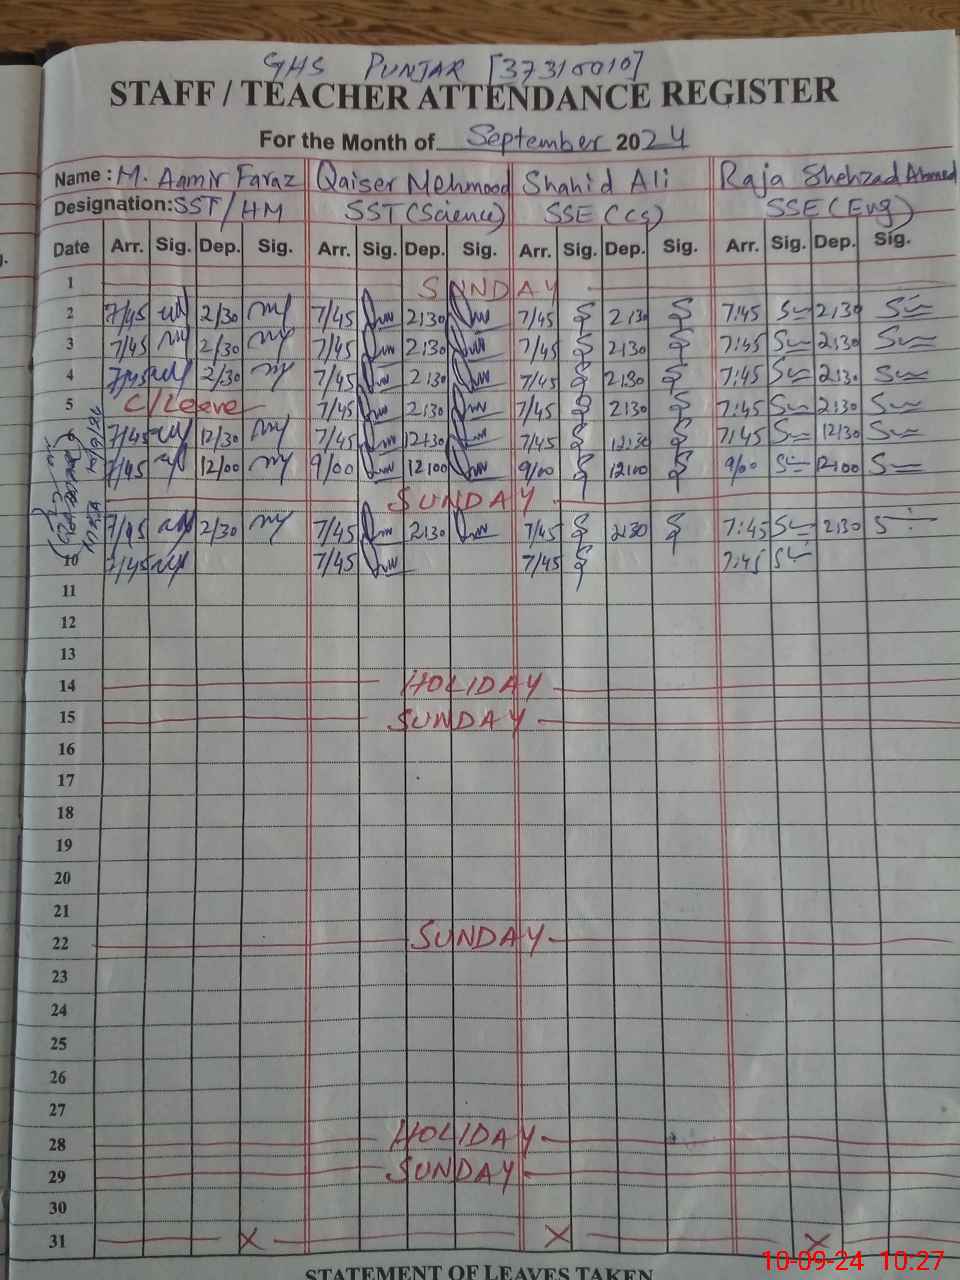 GHS PUNJAR [37310010]
STAFF / TEACHER ATTENDANCE REGISTER
For the Month of September 2024
Name : M. Aamir Faraz Qaiser Mehmood Shahid Ali Raja Shehzad Ahmed
Designation: SST/HM SST (Science) SSE (CS) SSE (Eng)
Date Arr. Sig. Dep. Sig. Arr. Sig. Dep. Sig. Arr. Sig. Dep. Sig. Arr. Sig. Dep. Sig.
1 SUNDAY
2 7/45 2/30 7/45 2:30 7/45 2:30 7:45 2:30
3 7/45 2/30 7/45 2:30 7/45 2:30 7:45 2:30
4 7/45 2/30 7/45 2:30 7/45 2:30 7:45 2:30
5 C/Leave 7/45 2:30 7/45 2:30 7:45 2:30
7/45 12/30 7/45 12:30 7/45 12:30 7:45 12:30
7/45 12/00 9/00 12:00 9/00 12:00 9/00 12:00
SUNDAY
7/45 2/30 7/45 2:30 7/45 2:30 7:45 2:30
10 7/45 7/45 7/45 7:45
11
12
13
14 HOLIDAY
15 SUNDAY
16
17
18
19
20
21
22 SUNDAY
23
24
25
26
27
28 HOLIDAY
29 SUNDAY
30
31 X X X
STATEMENT OF LEAVES TAKEN
10-09-24 10:27